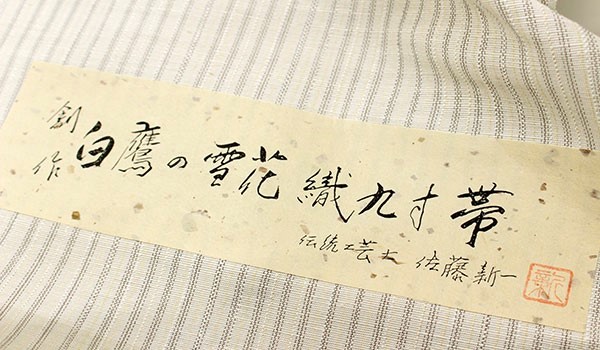 創作 白鷹の雪花織九寸帯
伝統工芸士 佐藤新一
新